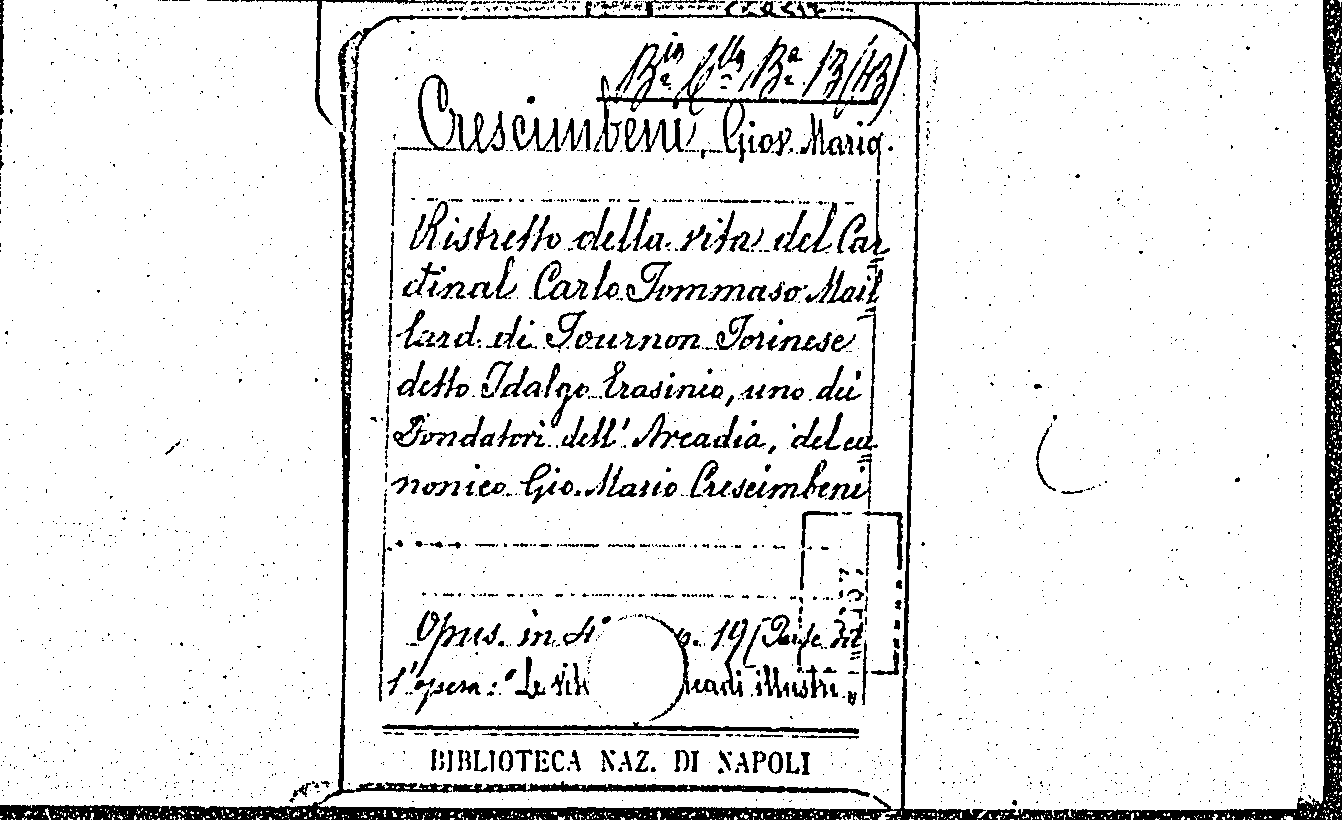 Crescimbeni, Giov. Mario.
Ristretto della vita del Car
dinal Carlo Tommaso Mail
lard di Tournon Torinese
detto Idalgo Erasinio, uno dei
Fondatori dell' Arcadia, del ca
nonico Gio. Mario Crescimbeni
Opus. in 4° p. 19 (Parte del
l'opera: "Le vit cadi illustri"
BIBLIOTECA NAZ. DI NAPOLI